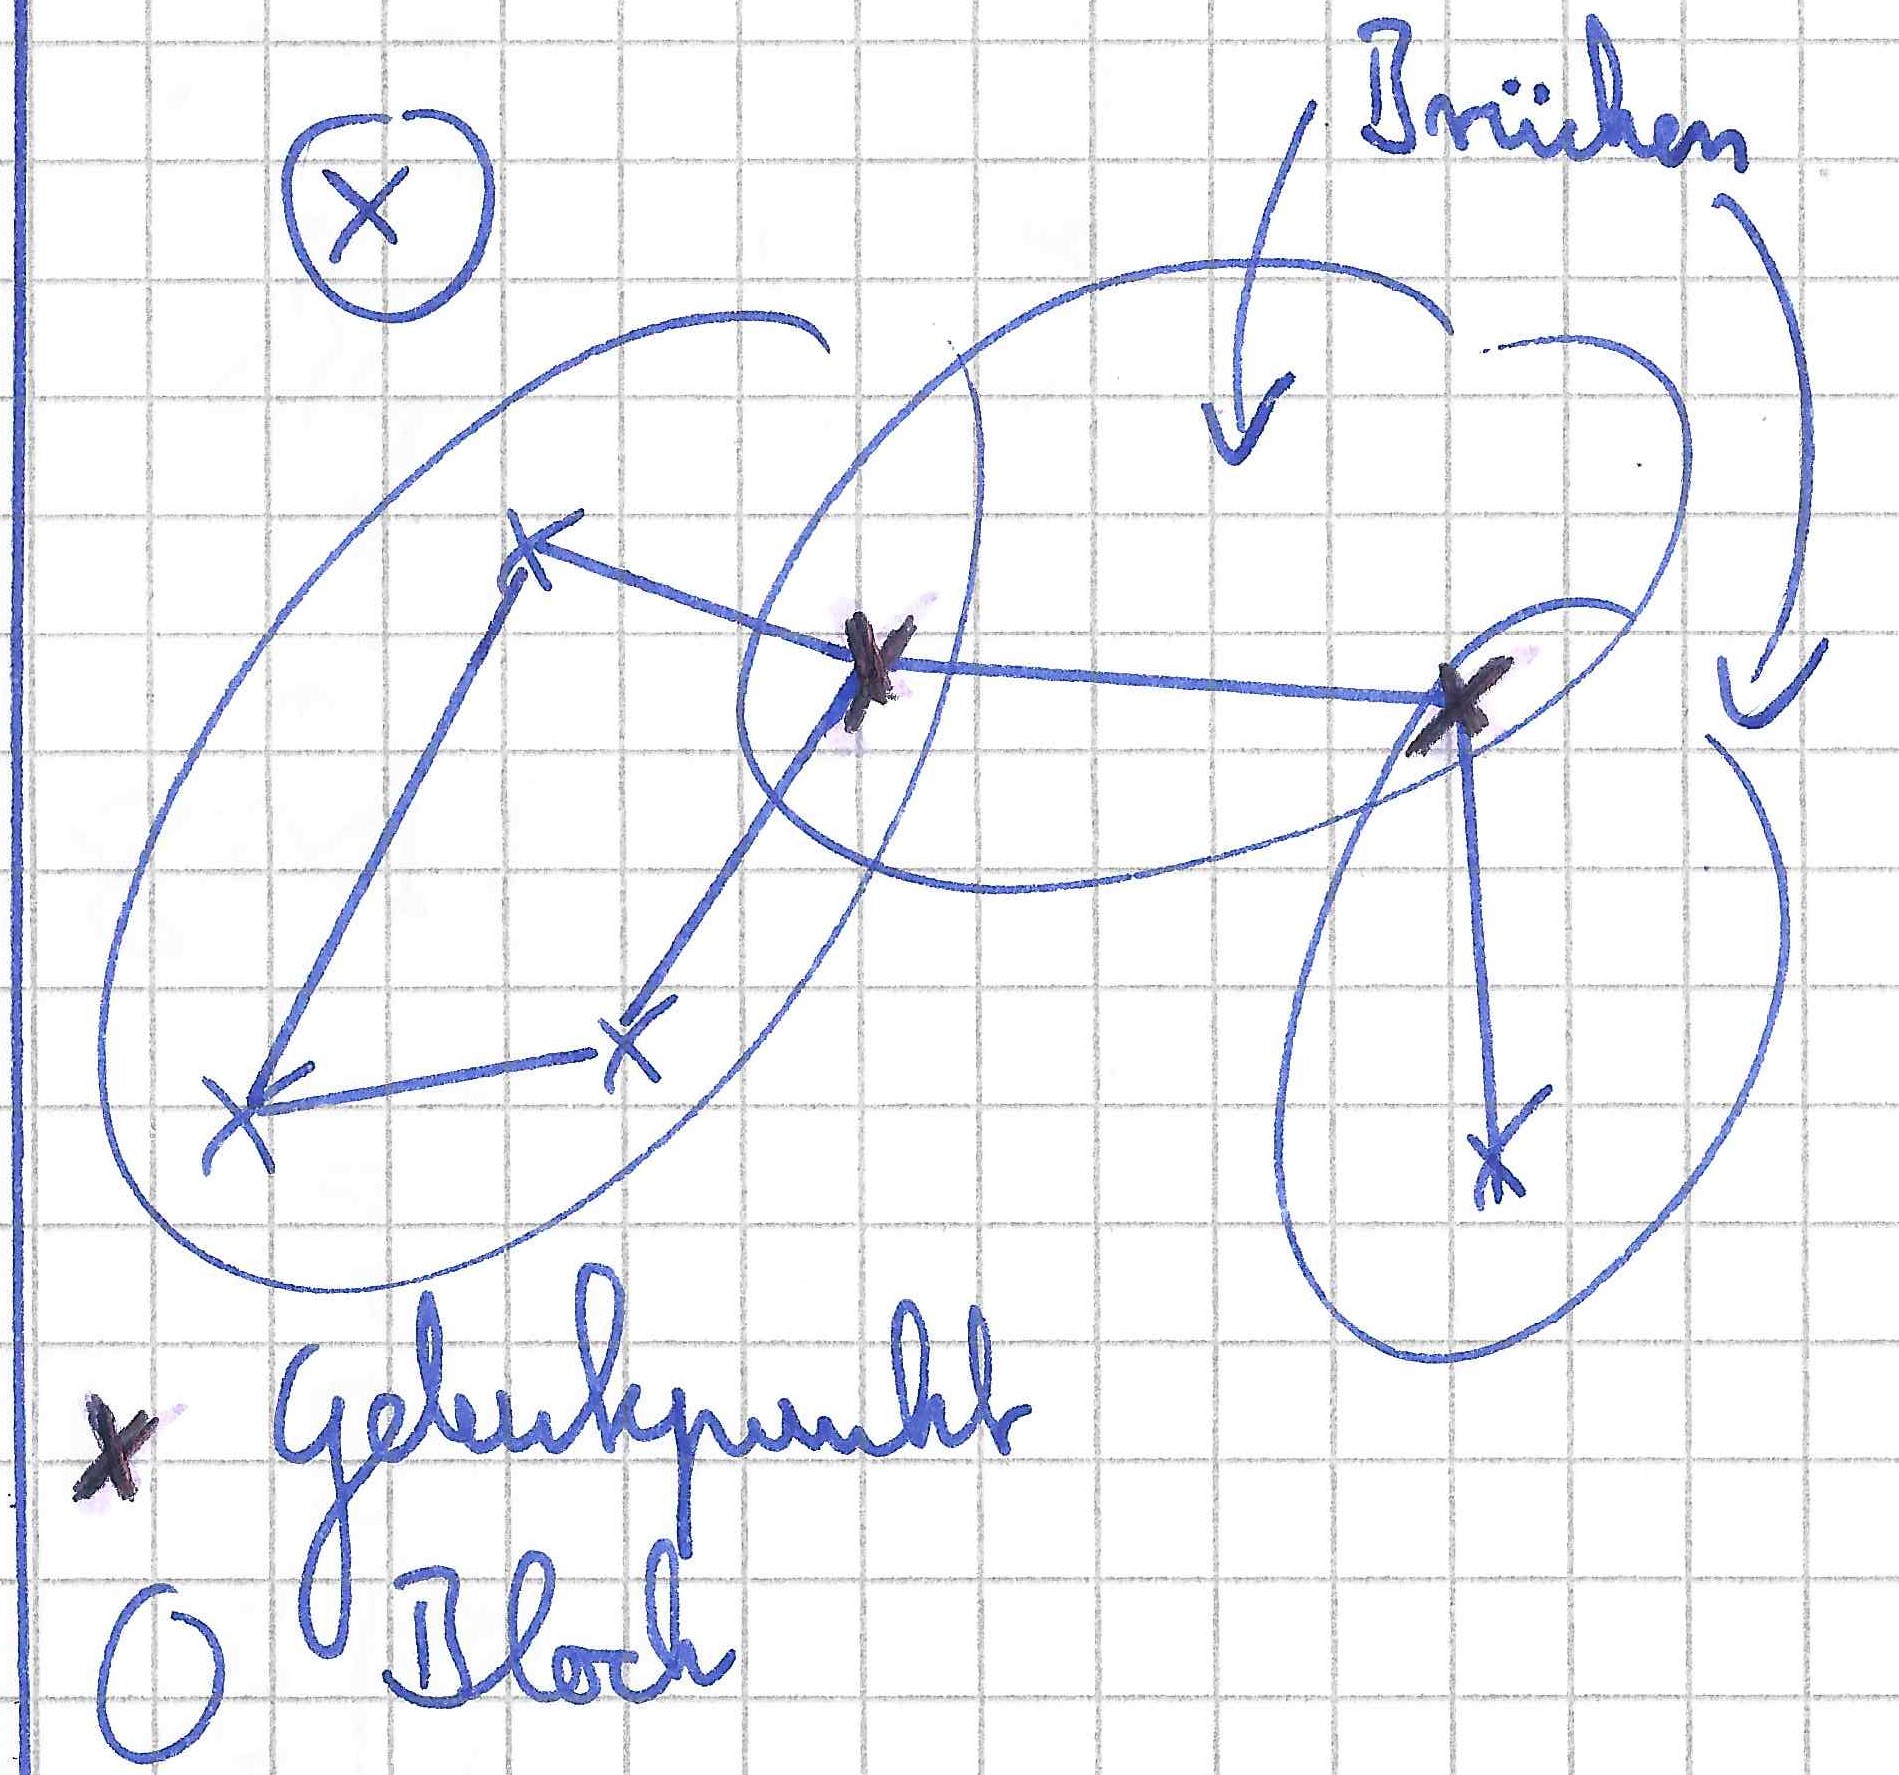 Brücken
Gelenkpunkt
Block